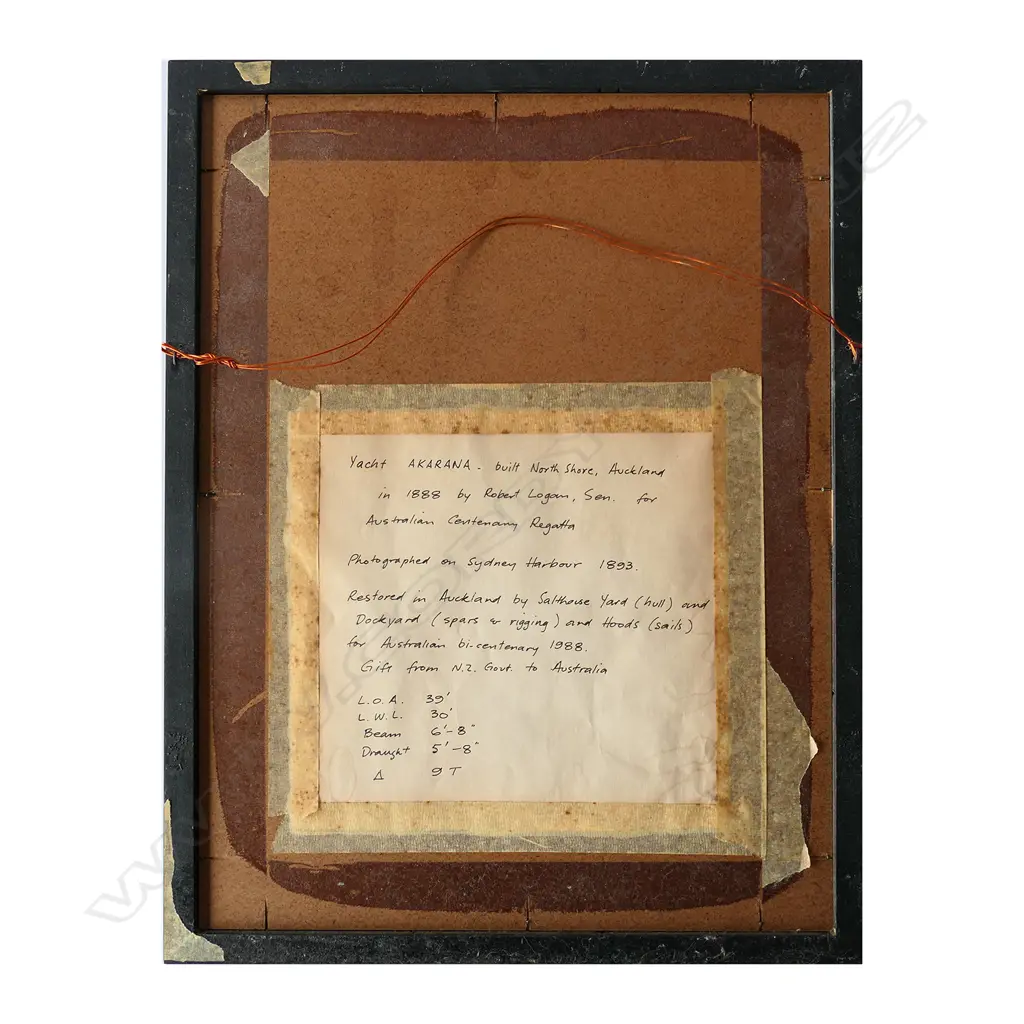 Yacht AKARANA - built North Shore, Auckland
in 1888 by Robert Logan, Sen. for
Australian Centenary Regatta
Photographed on Sydney Harbour 1893.
Restored in Auckland by Salthouse Yard (hull) and
Dockyard (spars & rigging) and Hoods (sails)
for Australian bi-centenary 1988.
Gift from N.Z. Govt. to Australia
L.O.A. 39'
L.W.L. 30'
Beam 6'-8"
Draught 5'-8"
Δ 9 T